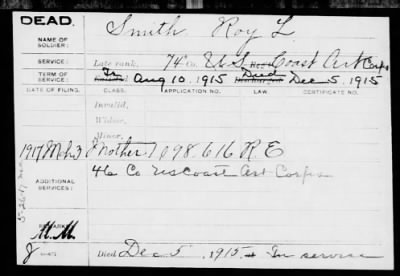 DEAD.
NAME OF SOLDIER: Smith Roy L
SERVICE: Late rank, 74" Co. U.S. Coast Art Corps
TERM OF SERVICE: Enlisted Aug 10, 1915 Died Dec 5, 1915
DATE OF FILING. CLASS. APPLICATION NO. LAW. CERTIFICATE NO.
Invalid,
Widow,
Minor,
1917 Mch 3 Mother 1098.616 R E
ADDITIONAL SERVICES: 46 Co US Coast Art Corps
REMARKS:
M.M.
Died Dec 5, 1915 - In service